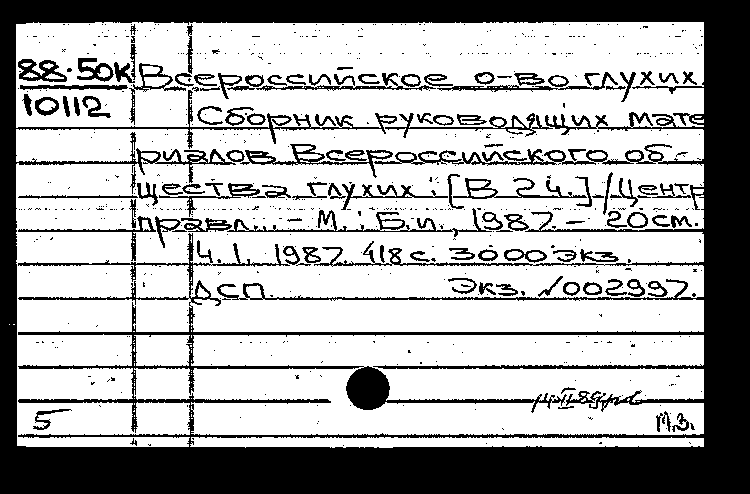 88-50К Всероссийское о-во глухих.
10112
Сборник руководящих мате
риалов Всероссийского об-
щества глухих: [В 2 ч.] / Центр
правл... - М.: Б.и., 1987. - 20 см.
Ч. 1. 1987. 418 с. 3000 экз.
ДСП. Экз. №002997.
5
М.З.